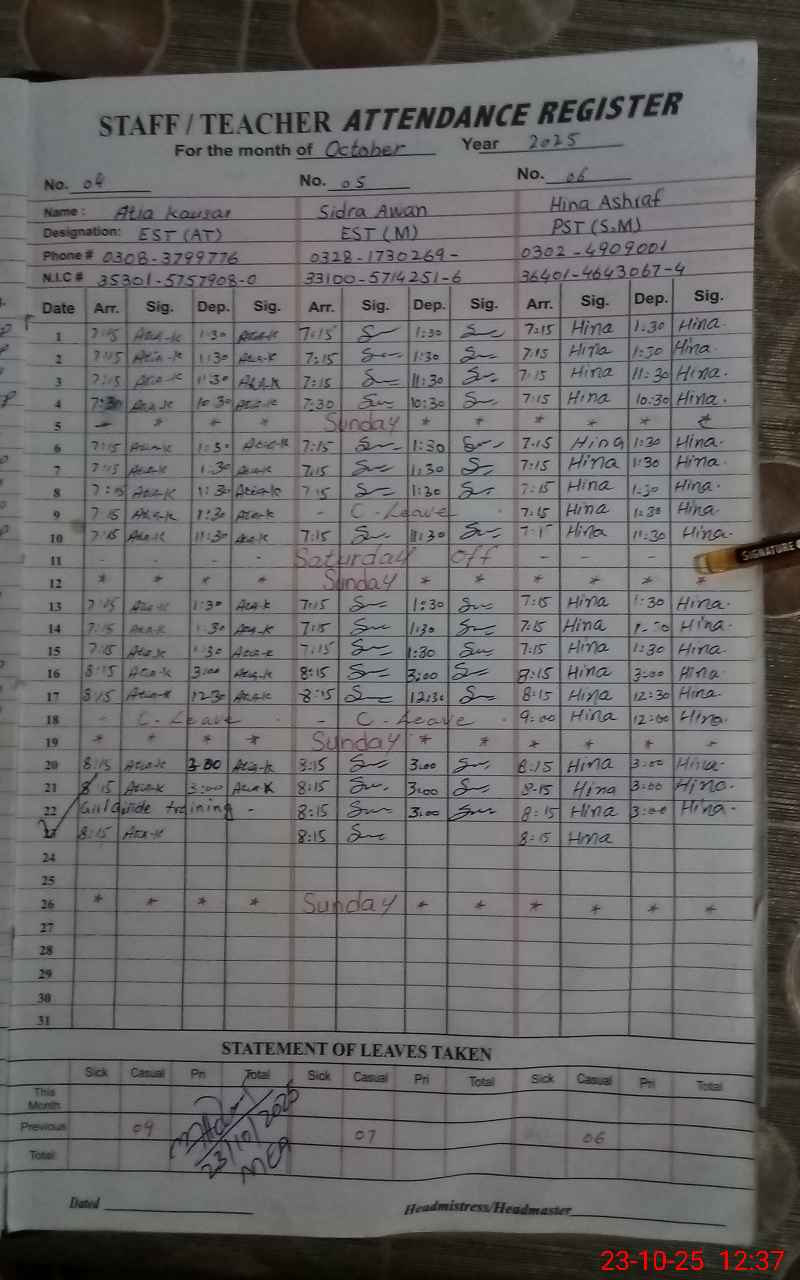 STAFF / TEACHER ATTENDANCE REGISTER
For the month of October Year 2025
No. 04 No. 05 No. 06
Name : Atia Kausar Sidra Awan Hina Ashraf
Designation: EST (AT) EST (M) PST (S.M)
Phone # 0308-3799776 0328-1730269- 0302-4909001
N.I.C # 35301-5757908-0 33100-5714251-6 36401-4643067-4
Date Arr. Sig. Dep. Sig. Arr. Sig. Dep. Sig. Arr. Sig. Dep. Sig.
1 7:15 Atia-K 1:30 Atia-K 7:15 1:30 7:15 Hina 1:30 Hina.
2 7:15 Atia-K 1:30 Atia-K 7:15 1:30 7:15 Hina 1:30 Hina.
3 7:15 Atia-K 11:30 Atia-K 7:15 11:30 7:15 Hina 11:30 Hina.
4 7:30 Atia-K 10:30 Atia-K 7:30 10:30 7:15 Hina 10:30 Hina.
5 * * * * Sunday * * * * * *
6 7:15 Atia-K 1:30 Atia-K 7:15 1:30 7:15 Hina 1:30 Hina.
7 7:15 Atia-K 1:30 Atia-K 7:15 1:30 7:15 Hina 1:30 Hina.
8 7:15 Atia-K 1:30 Atia-K 7:15 1:30 7:15 Hina 1:30 Hina.
9 7:15 Atia-K 1:30 Atia-K - C-Leave 7:15 Hina 1:30 Hina.
10 7:15 Atia-K 11:30 Atia-K 7:15 11:30 Hina 11:30 Hina.
11 - - - - Saturday off - - -
12 * * * * Sunday * * * * * *
13 7:15 Atia-K 1:30 Atia-K 7:15 1:30 7:15 Hina 1:30 Hina.
14 7:15 Atia-K 1:30 Atia-K 7:15 1:30 7:15 Hina Hina.
15 7:15 Atia-K 1:30 Atia-K 7:15 1:30 7:15 Hina 1:30 Hina.
16 8:15 Atia-K 3:00 Atia-K 8:15 3:00 8:15 Hina 3:00 Hina
17 8:15 Atia-K 12:30 Atia-K 8:15 12:30 8:15 Hina 12:30 Hina.
18 - C-Leave - C-Leave - 9:00 Hina 12:00 Hina.
19 * * * * Sunday * * * * * *
20 8:15 Atia-K 3:00 Atia-K 8:15 3:00 8:15 Hina 3:00 Hina.
21 8:15 Atia-K 3:00 Atia-K 8:15 3:00 8:15 Hina 3:00 Hina.
22 training - 8:15 3:00 8:15 Hina 3:00 Hina.
23 8:15 Atia-K 8:15 8:15 Hina
24
25
26 * * * * Sunday * * * * * *
27
28
29
30
31
STATEMENT OF LEAVES TAKEN
Sick Casual Pri Total Sick Casual Pri Total Sick Casual Pri Total
This Month
Previous 09 07 06
Total
23/10/2025
MEA
Dated Headmistress/Headmaster
SIGNATURE
23-10-25 12:37